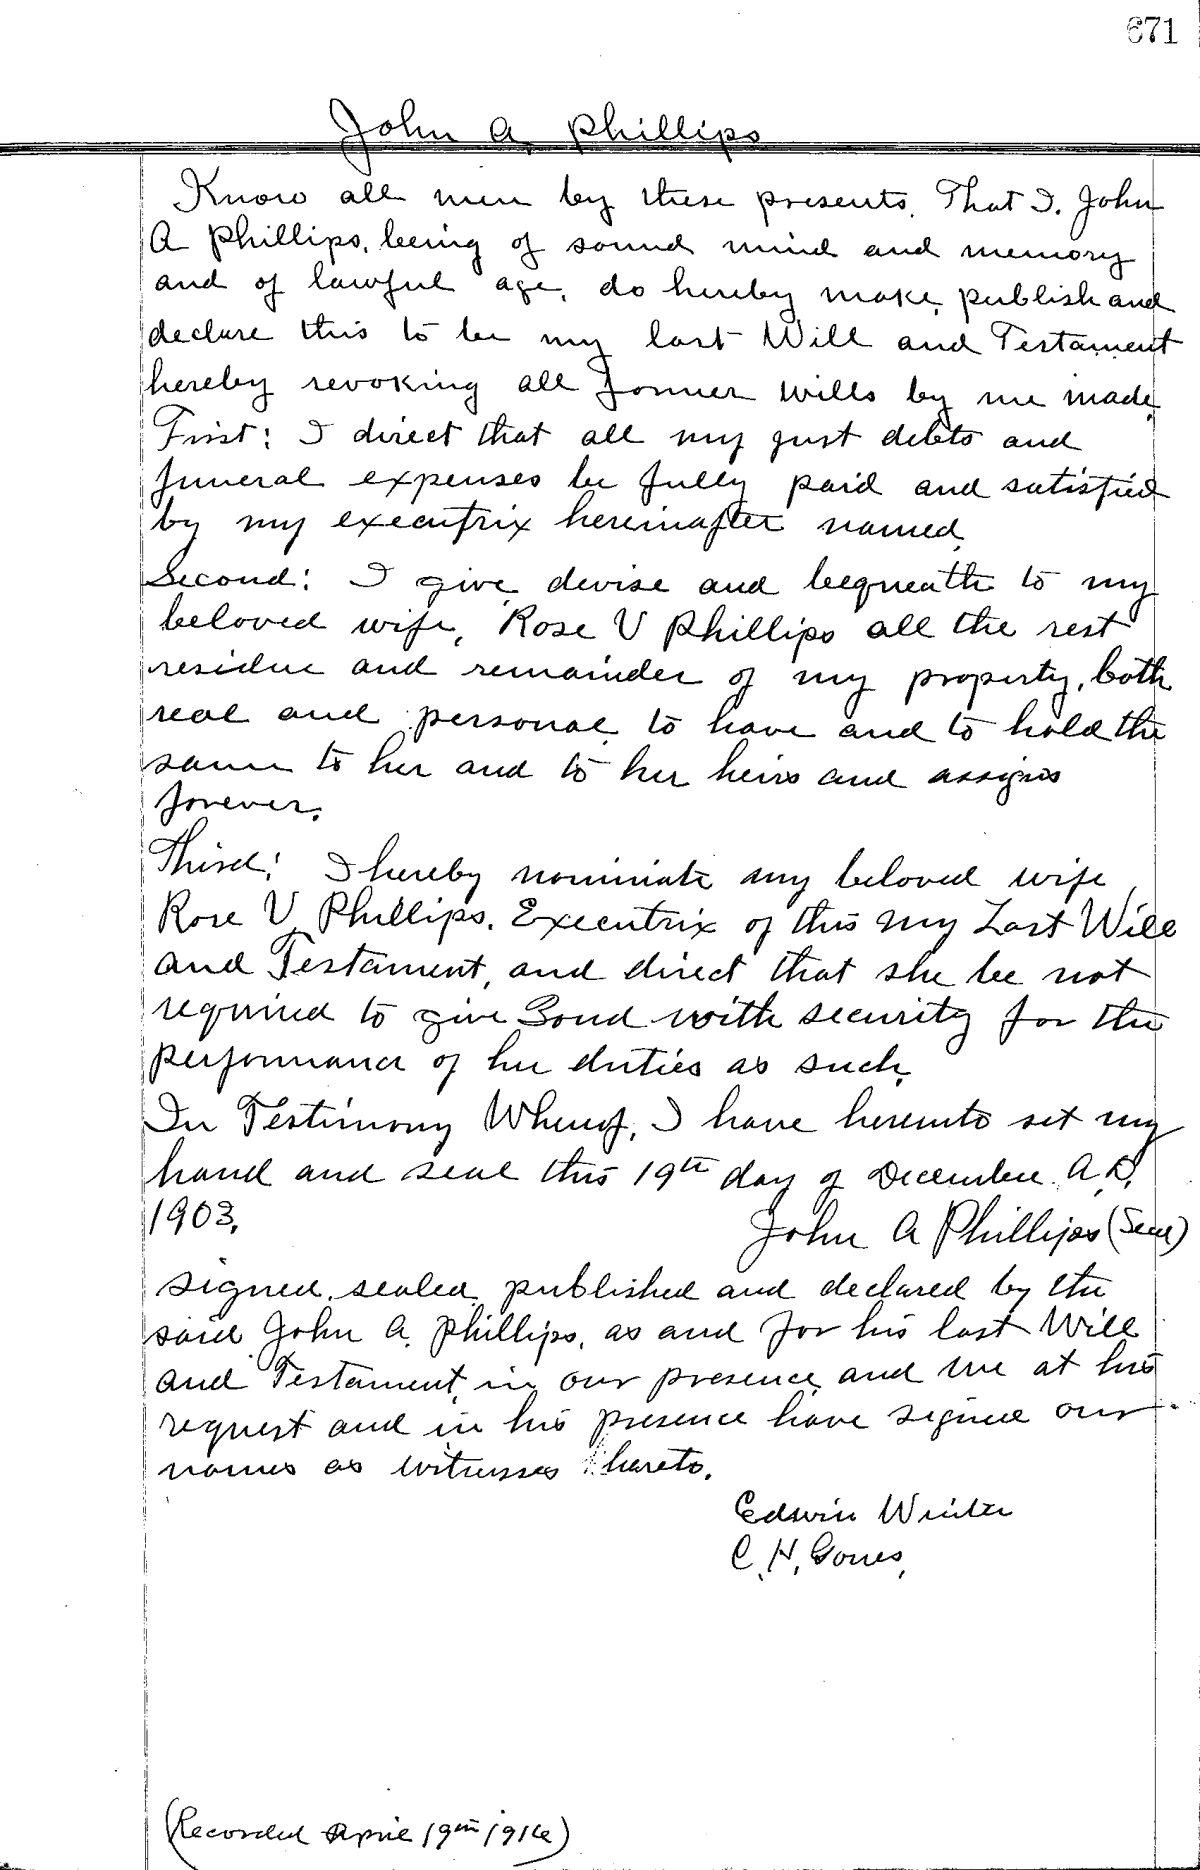 671
John A. Phillips
Know all men by these presents, That I, John
A Phillips, being of sound mind and memory
and of lawful age, do hereby make, publish and
declare this to be my last Will and Testament
hereby revoking all former wills by me made.
First: I direct that all my just debts and
funeral expenses be fully paid and satisfied
by my executrix hereinafter named.
Second: I give, devise and bequeath to my
beloved wife, Rose V Phillips all the rest
residue and remainder of my property, both
real and personal, to have and to hold the
same to her and to her heirs and assigns
forever.
Third: I hereby nominate my beloved wife,
Rose V. Phillips, Executrix of this my Last Will
and Testament, and direct that she be not
required to give Bond with security for the
performance of her duties as such.
In Testimony Whereof, I have hereunto set my
hand and seal this 19th day of December A.D.
1903.
John A Phillips (Seal)
signed, sealed, published and declared by the
said John A. Phillips, as and for his last Will
and Testament, in our presence, and we at his
request and in his presence have signed our
names as witnesses hereto.
Edwin Winter
C. H.
(Recorded April 19th 1916)